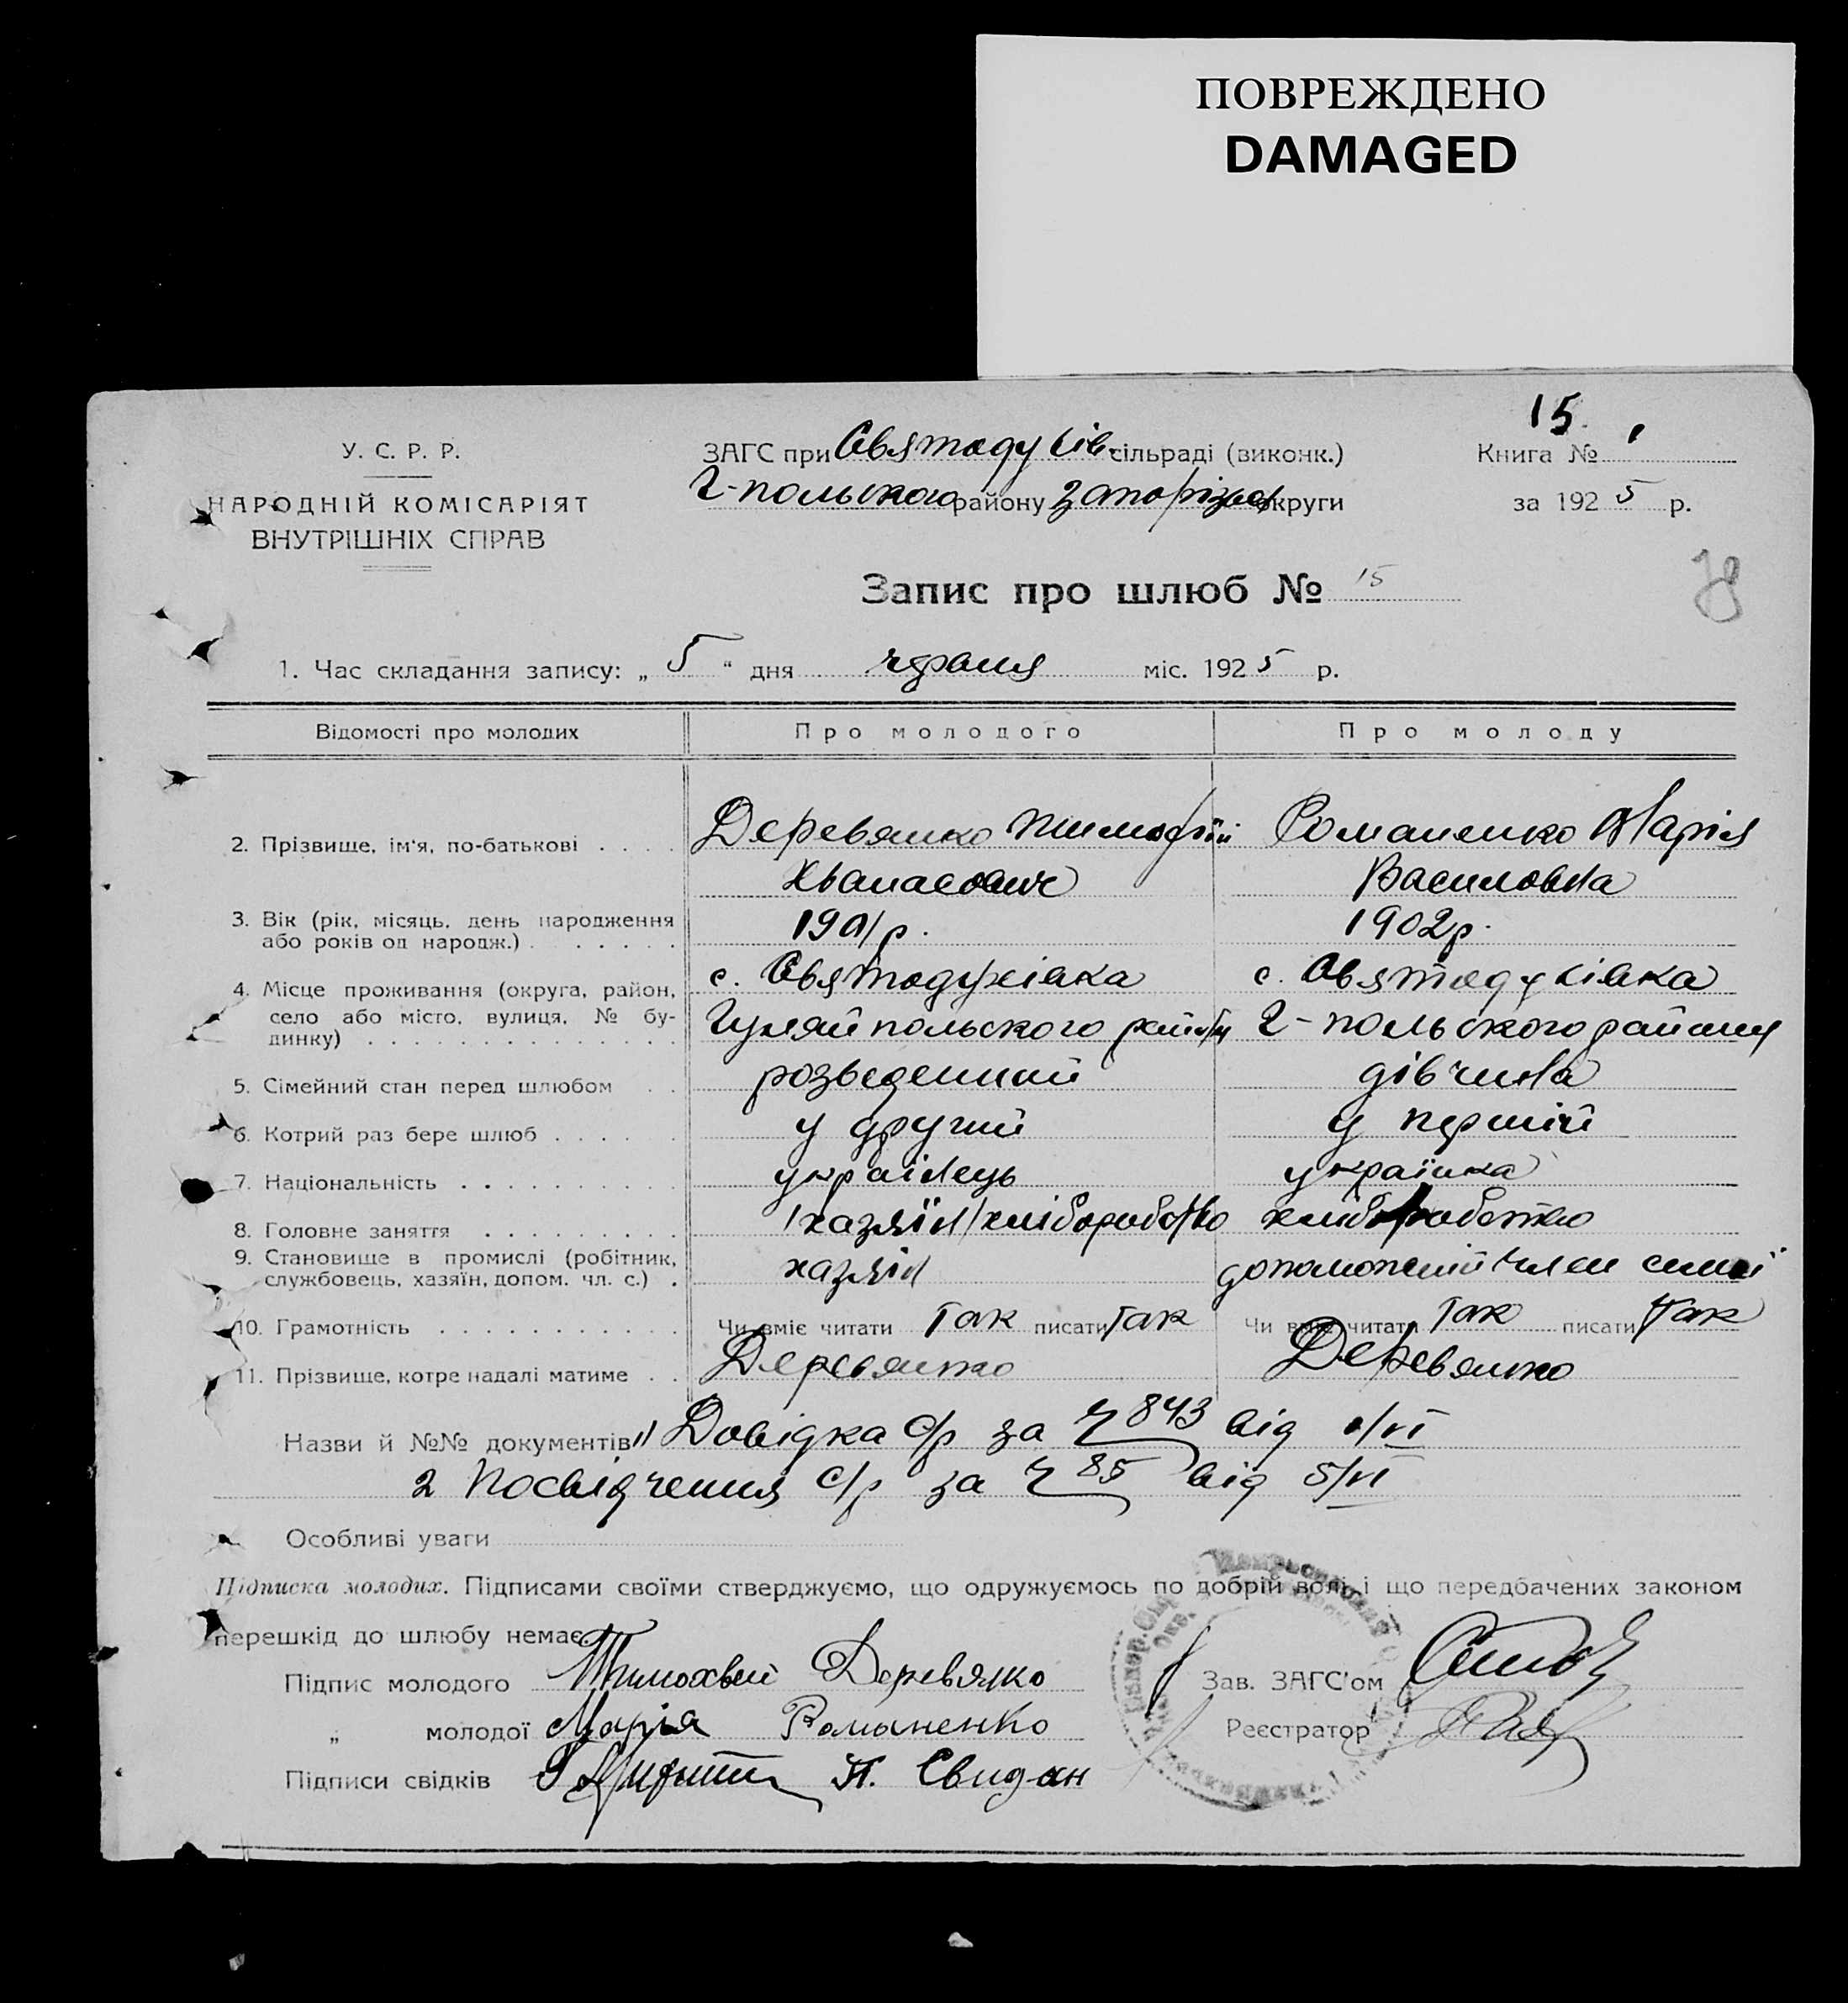 ПОВРЕЖДЕНО
DAMAGED
15.
У. С. Р. Р.
НАРОДНІЙ КОМІСАРІЯТ
ВНУТРІШНІХ СПРАВ
ЗАГС при Святодухів. сільраді (виконк.)
Г-польского району Запоріз округи
Книга №
за 1925 р.
Запис про шлюб № 15
78
1. Час складання запису: „ 5 “ дня червня міс. 1925 р.
Відомості про молодих
Про молодого
Про молоду
2. Прізвище, ім'я, по-батькові . . . .
Деревянко Тимофій
Хванасович
Романенко Марія
Василовна
3. Вік (рік, місяць, день народження
або років од народж.) . . . . . .
1901 р.
1902 р.
4. Місце проживання (округа, район,
село або місто, вулиця, № бу-
динку) . . . . . . . . . . . . .
с. Святодухівка
Гуляйпольского району
с. Святодухівка
Г-польского району
5. Сімейний стан перед шлюбом . .
розведенний
дівчина
6. Котрий раз бере шлюб . . . . .
у другий
у перший
7. Національність . . . . . . . . .
українець
українка
8. Головне заняття . . . . . . . .
/хазяїн/ хліборобство
хліборобство
9. Становище в промислі (робітник,
службовець, хазяїн, допом. чл. с.) .
хазяїн
допоможений член симї
10. Грамотність . . . . . . . . . . .
Чи вміє читати Так писати Так
Чи вміє читати Так писати Так
11. Прізвище, котре надалі матиме . .
Деревянко
Деревянко
Назви й №№ документів 1) Довідка с/р за ч 843 від 1/VI
2 Посвідчення с/р за ч 85 від 5/VI
Особливі уваги
Підписка молодих. Підписами своїми стверджуємо, що одружуємось по добрій волі і що передбачених законом
перешкід до шлюбу немає.
Підпис молодого Тимохвей Деревянко
Зав. ЗАГС'ом
„ молодої Марія Романенко
Реєстратор
Підписи свідків П. Свидан